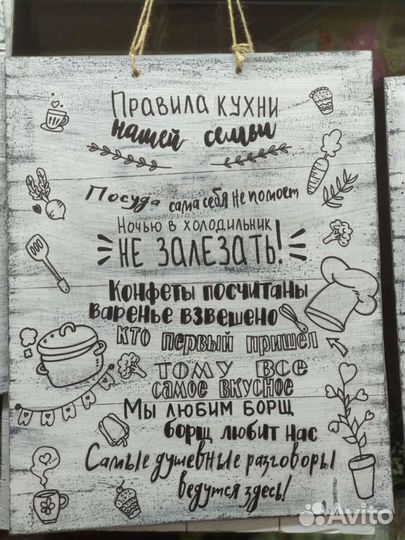 Правила кухни
нашей семьи
Посуда сама себя не помоет
Ночью в холодильник
НЕ ЗАЛЕЗАТЬ!
Конфеты посчитаны
варенье взвешено
кто первый пришел
тому все
самое вкусное
Мы любим борщ
борщ любит нас
Самые душевные разговоры
ведутся здесь!
Avito